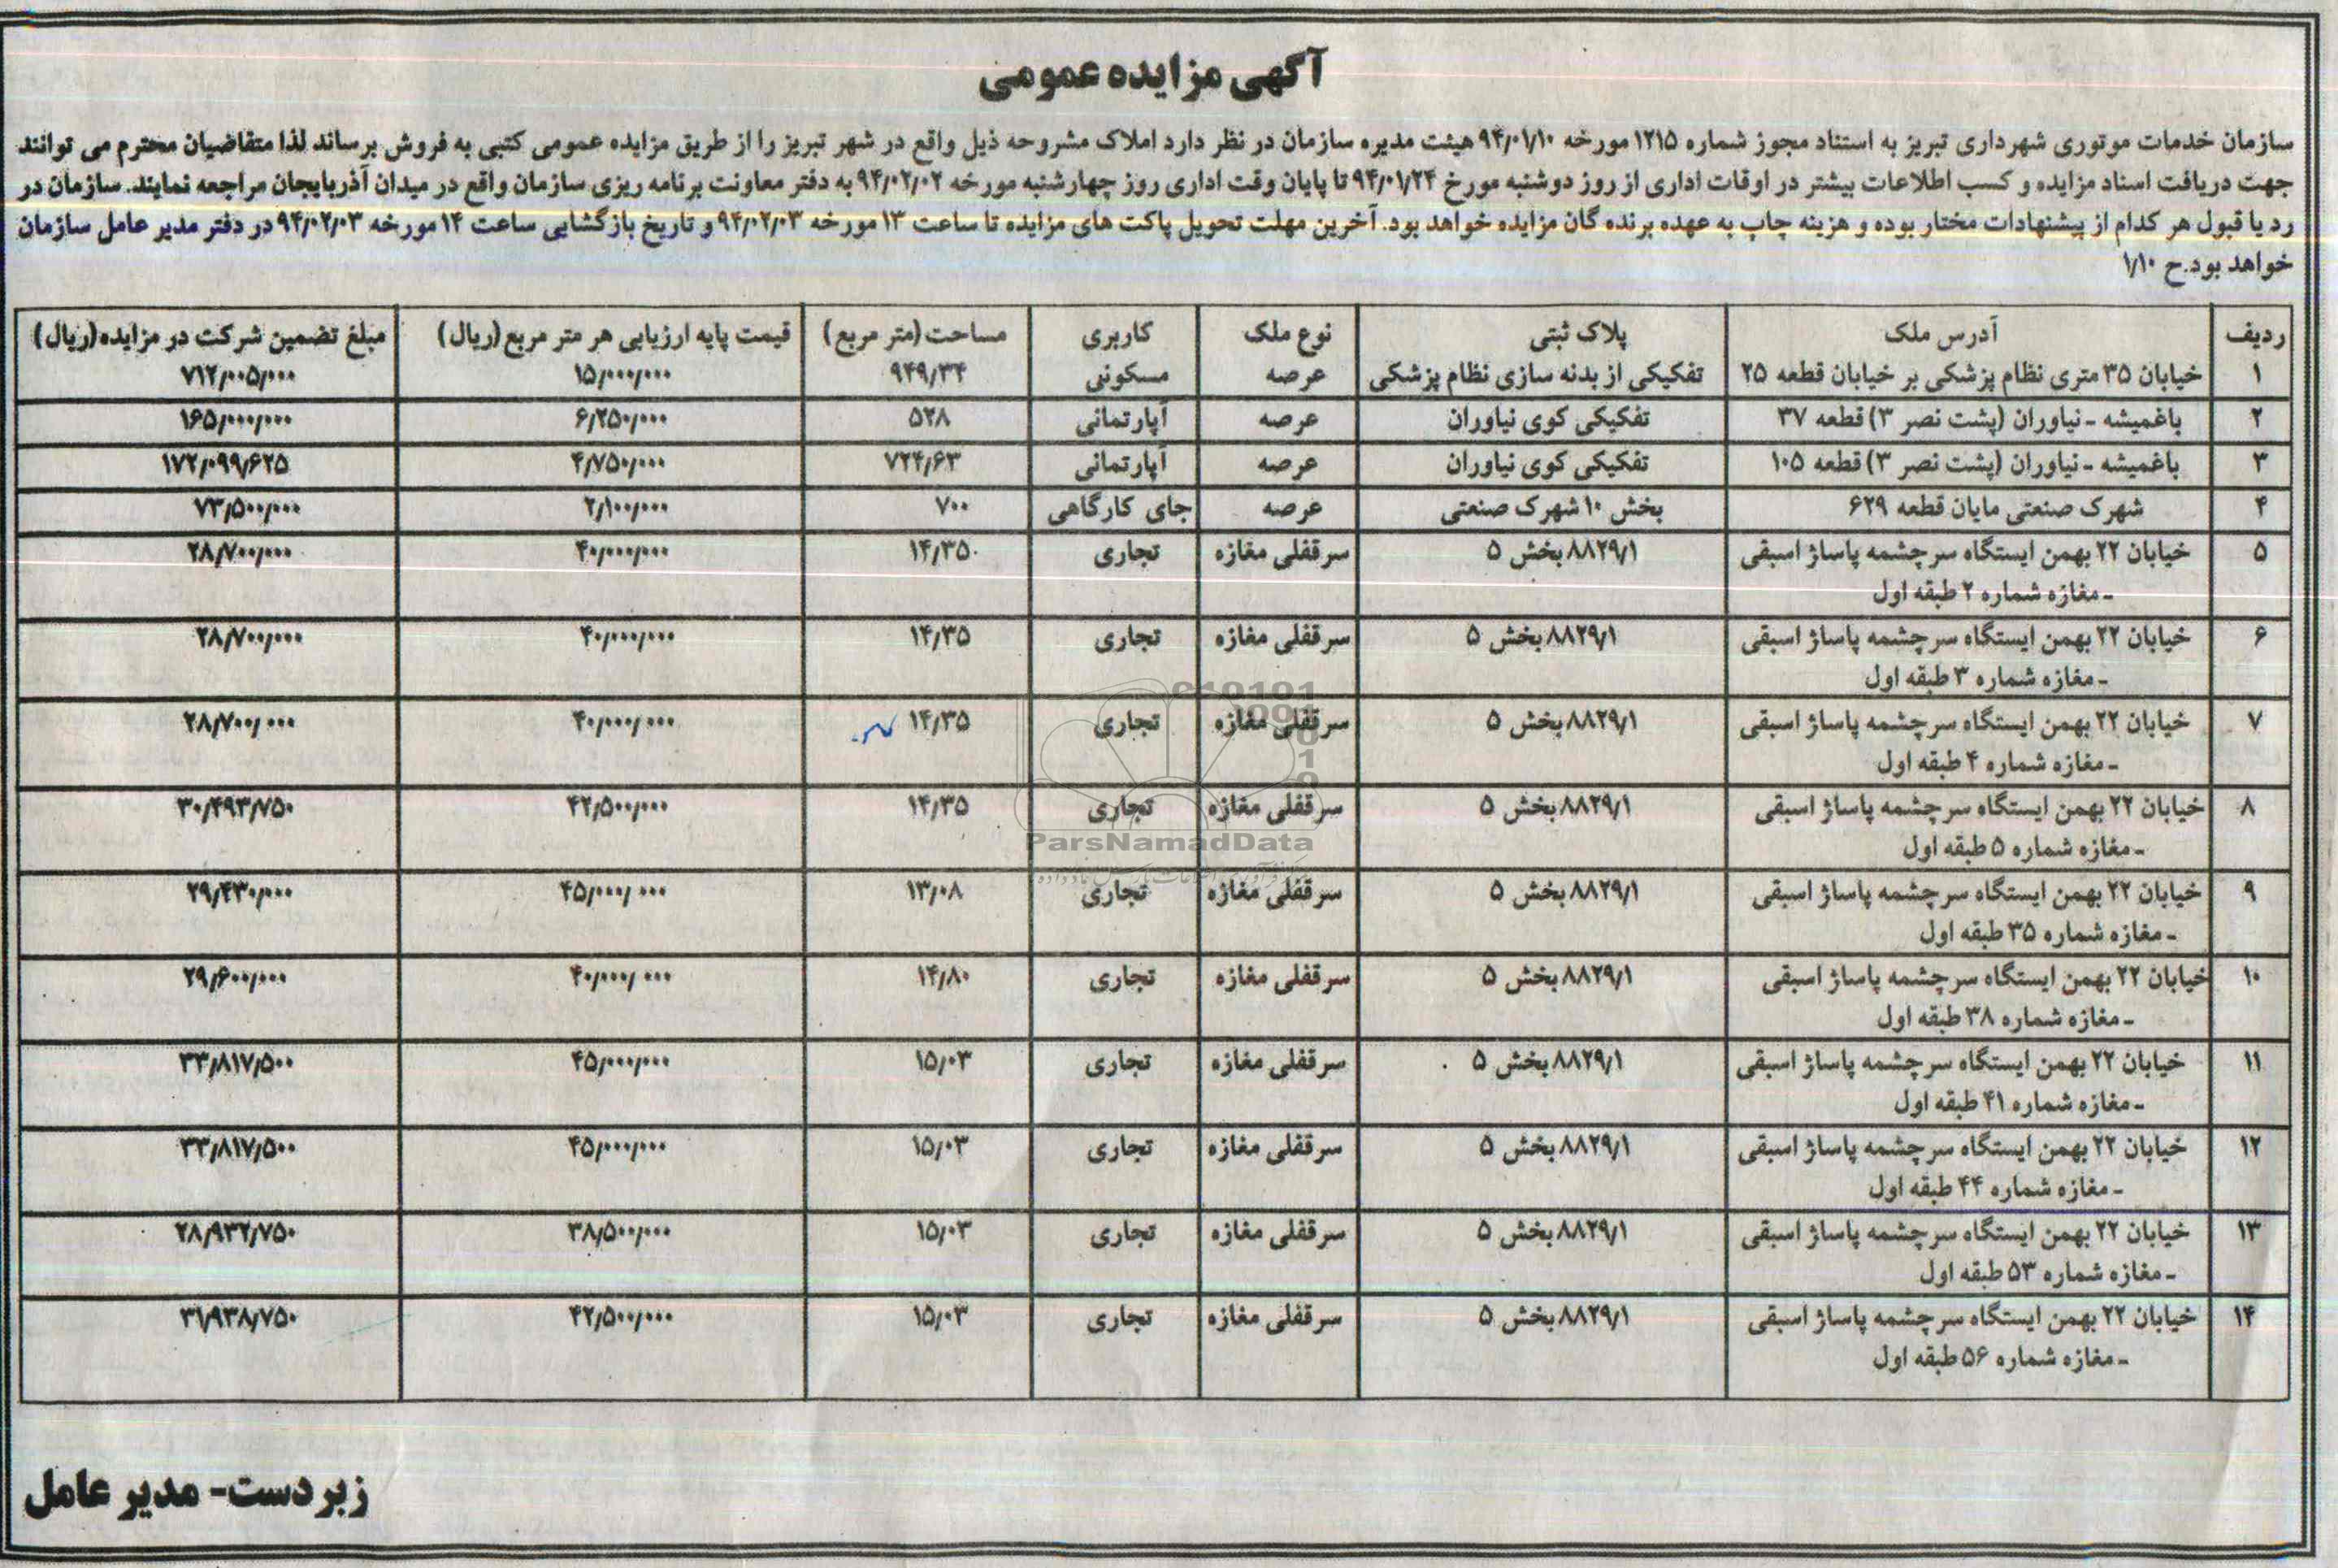 آگهی مزایده عمومی
سازمان خدمات موتوری شهرداری تبریز به استناد مجوز شماره ۱۲۱۵ مورخه ۹۴/۰۱/۱۰ هیئت مدیره سازمان در نظر دارد املاک مشروحه ذیل واقع در شهر تبریز را از طریق مزایده عمومی کتبی به فروش برساند لذا متقاضیان محترم می توانند
جهت دریافت اسناد مزایده و کسب اطلاعات بیشتر در اوقات اداری از روز دوشنبه مورخ ۹۴/۰۱/۲۴ تا پایان وقت اداری روز چهارشنبه مورخه ۹۴/۰۲/۰۲ به دفتر معاونت برنامه ریزی سازمان واقع در میدان آذربایجان مراجعه نمایند. سازمان در
رد یا قبول هر کدام از پیشنهادات مختار بوده و هزینه چاپ به عهده برنده گان مزایده خواهد بود. آخرین مهلت تحویل پاکت های مزایده تا ساعت ۱۳ مورخه ۹۴/۰۲/۰۳ و تاریخ بازگشایی ساعت ۱۴ مورخه ۹۴/۰۲/۰۳ در دفتر مدیر عامل سازمان
خواهد بود. ح ۱/۱۰
ردیف آدرس ملک پلاک ثبتی نوع ملک کاربری مساحت(متر مربع) قیمت پایه ارزیابی هر متر مربع(ریال) مبلغ تضمین شرکت در مزایده(ریال)
۱ خیابان ۳۵ متری نظام پزشکی بر خیابان قطعه ۲۵ تفکیکی از بدنه سازی نظام پزشکی عرصه مسکونی ۹۴۹/۳۴ ۱۵/۰۰۰/۰۰۰ ۷۱۲/۰۰۵/۰۰۰
۲ باغمیشه - نیاوران (پشت نصر ۳) قطعه ۳۷ تفکیکی کوی نیاوران عرصه آپارتمانی ۵۲۸ ۶/۲۵۰/۰۰۰ ۱۶۵/۰۰۰/۰۰۰
۳ باغمیشه - نیاوران (پشت نصر ۳) قطعه ۱۰۵ تفکیکی کوی نیاوران عرصه آپارتمانی ۷۲۴/۶۳ ۴/۷۵۰/۰۰۰ ۱۷۲/۰۹۹/۶۲۵
۴ شهرک صنعتی مایان قطعه ۶۲۹ بخش ۱۰ شهرک صنعتی عرصه جای کارگاهی ۷۰۰ ۲/۱۰۰/۰۰۰ ۷۳/۵۰۰/۰۰۰
۵ خیابان ۲۲ بهمن ایستگاه سرچشمه پاساژ اسبقی ۸۸۲۹/۱ بخش ۵ سرقفلی مغازه تجاری ۱۴/۳۵ ۴۰/۰۰۰/۰۰۰ ۲۸/۷۰۰/۰۰۰
- مغازه شماره ۲ طبقه اول
۶ خیابان ۲۲ بهمن ایستگاه سرچشمه پاساژ اسبقی ۸۸۲۹/۱ بخش ۵ سرقفلی مغازه تجاری ۱۴/۳۵ ۴۰/۰۰۰/۰۰۰ ۲۸/۷۰۰/۰۰۰
- مغازه شماره ۳ طبقه اول
۷ خیابان ۲۲ بهمن ایستگاه سرچشمه پاساژ اسبقی ۸۸۲۹/۱ بخش ۵ سرقفلی مغازه تجاری ۱۴/۳۵ ۴۰/۰۰۰/۰۰۰ ۲۸/۷۰۰/۰۰۰
- مغازه شماره ۴ طبقه اول
۸ خیابان ۲۲ بهمن ایستگاه سرچشمه پاساژ اسبقی ۸۸۲۹/۱ بخش ۵ سرقفلی مغازه تجاری ۱۴/۳۵ ۴۲/۵۰۰/۰۰۰ ۳۰/۴۹۳/۷۵۰
- مغازه شماره ۵ طبقه اول
ParsNamadData
۹ خیابان ۲۲ بهمن ایستگاه سرچشمه پاساژ اسبقی ۸۸۲۹/۱ بخش ۵ سرقفلی مغازه تجاری ۱۳/۰۸ ۴۵/۰۰۰/۰۰۰ ۲۹/۴۳۰/۰۰۰
- مغازه شماره ۳۵ طبقه اول
۱۰ خیابان ۲۲ بهمن ایستگاه سرچشمه پاساژ اسبقی ۸۸۲۹/۱ بخش ۵ سرقفلی مغازه تجاری ۱۴/۸۰ ۴۰/۰۰۰/۰۰۰ ۲۹/۶۰۰/۰۰۰
- مغازه شماره ۳۸ طبقه اول
۱۱ خیابان ۲۲ بهمن ایستگاه سرچشمه پاساژ اسبقی ۸۸۲۹/۱ بخش ۵ سرقفلی مغازه تجاری ۱۵/۰۳ ۴۵/۰۰۰/۰۰۰ ۳۳/۸۱۷/۵۰۰
- مغازه شماره ۴۱ طبقه اول
۱۲ خیابان ۲۲ بهمن ایستگاه سرچشمه پاساژ اسبقی ۸۸۲۹/۱ بخش ۵ سرقفلی مغازه تجاری ۱۵/۰۳ ۴۵/۰۰۰/۰۰۰ ۳۳/۸۱۷/۵۰۰
- مغازه شماره ۴۴ طبقه اول
۱۳ خیابان ۲۲ بهمن ایستگاه سرچشمه پاساژ اسبقی ۸۸۲۹/۱ بخش ۵ سرقفلی مغازه تجاری ۱۵/۰۳ ۳۸/۵۰۰/۰۰۰ ۲۸/۹۳۲/۷۵۰
- مغازه شماره ۵۳ طبقه اول
۱۴ خیابان ۲۲ بهمن ایستگاه سرچشمه پاساژ اسبقی ۸۸۲۹/۱ بخش ۵ سرقفلی مغازه تجاری ۱۵/۰۳ ۴۲/۵۰۰/۰۰۰ ۳۱/۹۳۸/۷۵۰
- مغازه شماره ۵۶ طبقه اول
زبردست- مدیر عامل